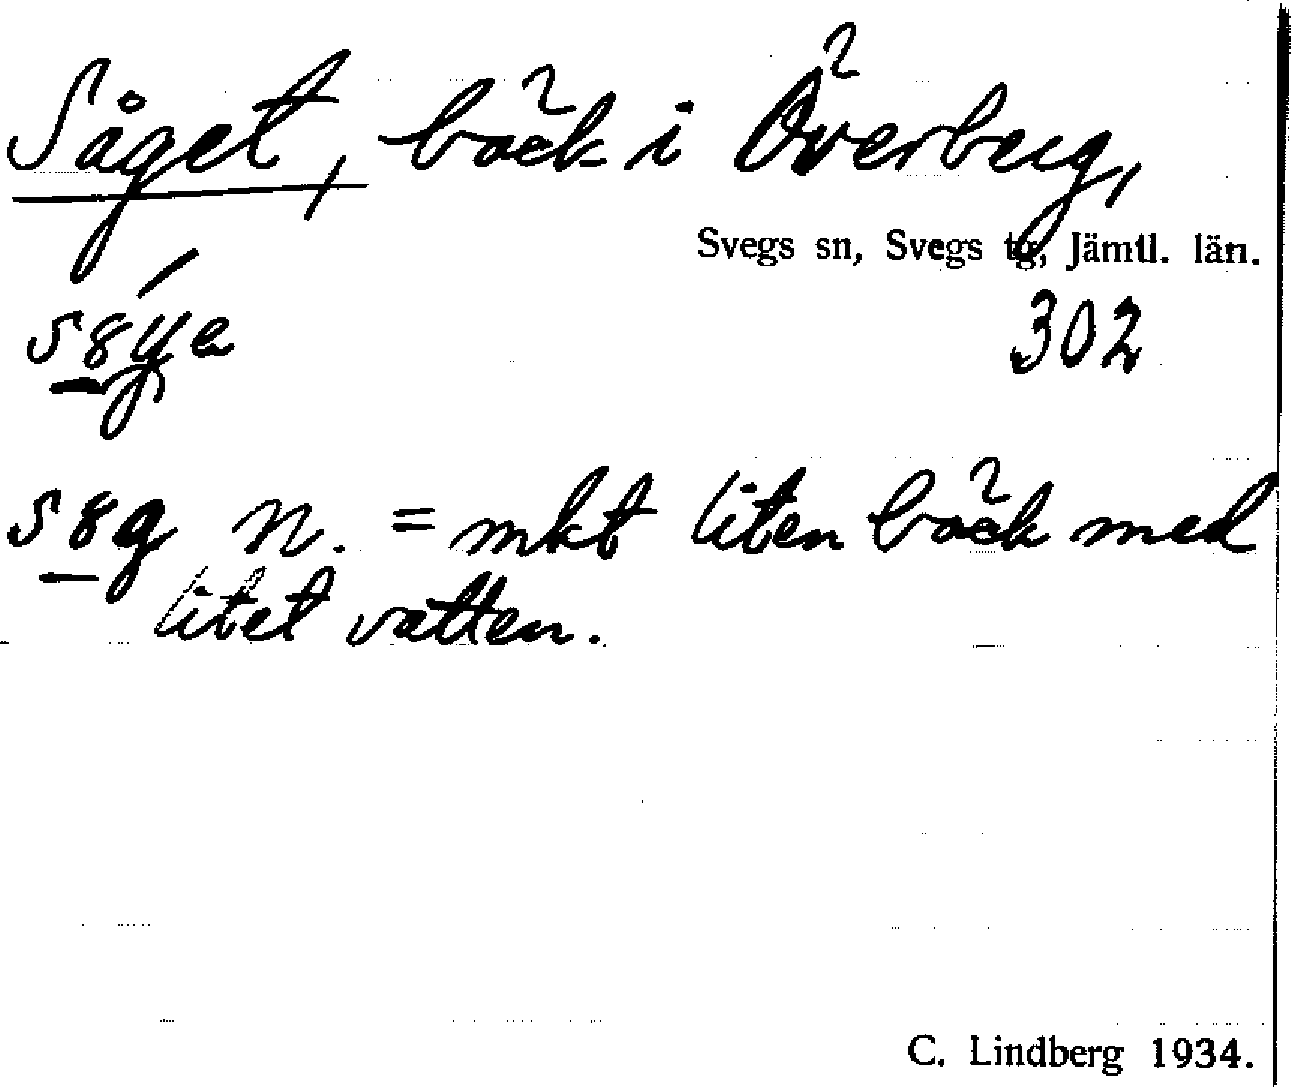 Såget, bäck i Överberg,
Svegs sn, Svegs tg, Jämtl. län.
302
n. = mkt liten bäck med
litet vatten.
C. Lindberg 1934.